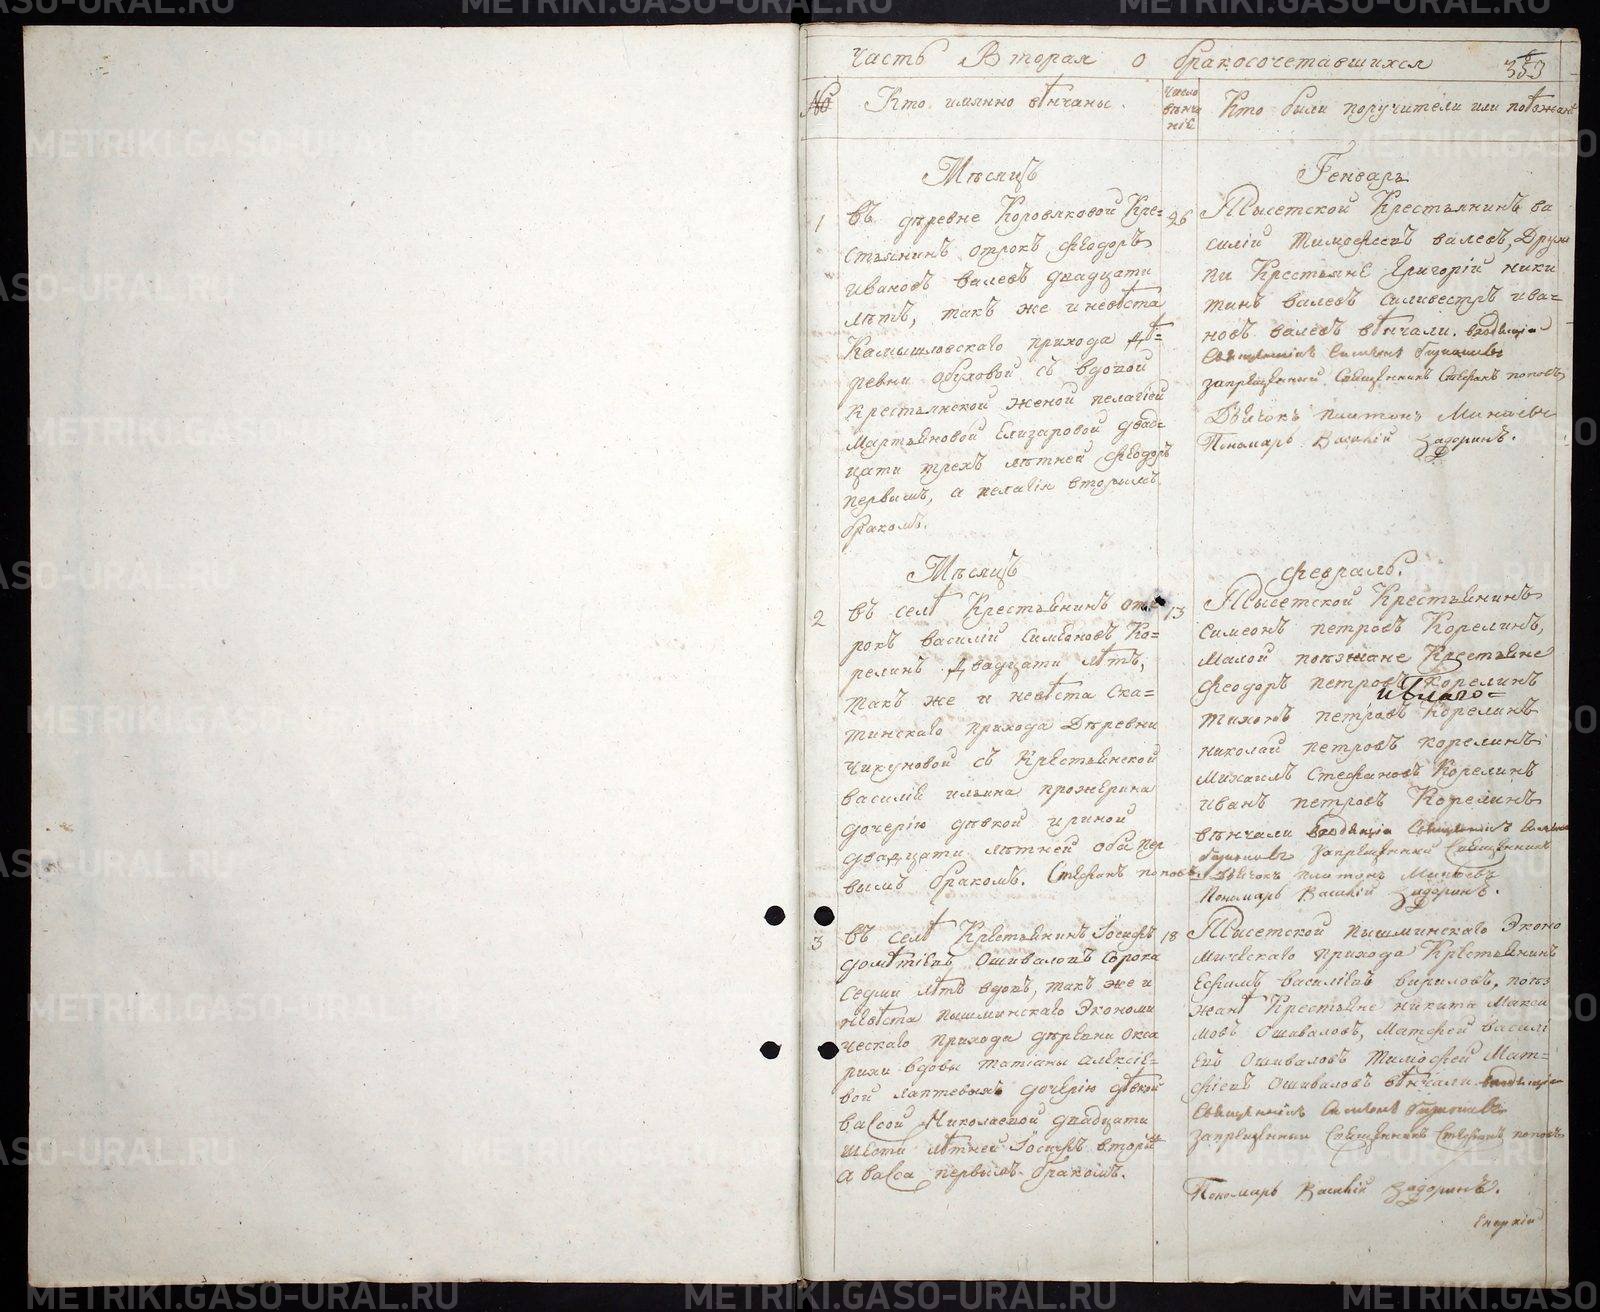 Часть Вторая о бракосочетавшихся 353
№ Кто имянно вѣнчаны. Число вѣнча нiе Кто были поручители или поѣзжанѣ
Мѣсяцъ Генварь
1 Въ деревне Коровяковой Кре=
стьянинъ отрокъ Феодоръ
Ивановъ Валевъ двадцати
лѣтъ, такъ же и невѣста
Камышловскаго прихода дѣ=
ревни Обуховой съ вдовой
крестьянской женой Пелагiей
Мартьяновой Елизаровой двад=
цати трехъ лѣтней Феодоръ
первымъ, а Пелагiя вторымъ
бракомъ.
26
Тысетской Крестьянинъ Ва
силiй Тимофеевъ Валевъ, Друж
ки Крестьяне Григорiй Ники
тинъ Валевъ Силивестръ Ива=
новъ Валевъ вѣнчали.
запрещенный Священникъ Стефанъ Поповъ
Дьячокъ Платонъ Минѣевъ
Пономарь Василiй Задоринъ.
Мѣсяцъ Февраль.
2 Въ селѣ Крестьянинъ от=
рокъ Василiй Симеоновъ Ко=
релинъ двадцати лѣтъ,
такъ же и невѣста Ска=
тинскаго прихода Деревни
Чикуновой съ Крестьянской
Василiя Ильина Прожерина
дочерiю дѣвкой Ириной
двадцати лѣтней оба пер
вымъ бракомъ. Стефанъ Поповъ
13
Тысетской Крестьянинъ
Симеонъ Петровъ Корелинъ,
Малой поезжане Крестьяне
Феодоръ Петровъ Корелинъ
Тихонъ Петровъ Корелинъ
Николай Петровъ Корелинъ
Михаилъ Стефановъ Корелинъ
Иванъ Петровъ Корелинъ
вѣнчали
Запрещенный Священникъ
Дьячокъ Платонъ Минѣевъ
Пономарь Василiй Задоринъ.
3 Въ селѣ Крестьянинъ Iосифъ
Дометiевъ Ошиваловъ сорока
седми лѣтъ вдовъ, такъ же и
невѣста Пышминскаго Экономи
ческаго прихода дѣревни Окса
рихи вдовы Татiаны Алексiе=
вой Лаптевыхъ дочерiю дѣвкой
Вассой Николаевой двадцати
шести лѣтней Iосифъ вторымъ
а Васса первымъ бракомъ.
18
Тысетской Пышминскаго Эконо
мическаго прихода Крестьянинъ
Ефимъ Василiевъ Вириловъ, поѣз
жанѣ Крестьяне Никита Макси
мовъ Ошиваловъ, Матфей Василi
евъ Ошиваловъ Тимофей Мат=
фiевъ Ошиваловъ вѣнчали
запрещенный Священникъ Стефанъ Поповъ
Пономарь Василiй Задоринъ.